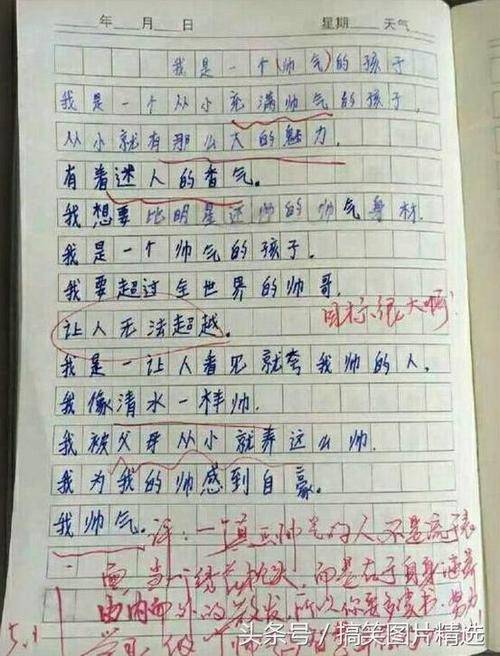 年 月 日 星期 天气
我是一个(帅气)的孩子
我是一个从小充满帅气的孩子,
从小就有那么大的魅力,
有着迷人的香气。
我想要比明星还帅的帅气身材.
我是一个帅气的孩子.
我要超过全世界的帅哥.
让人无法超越。
目标很大啊!
我是一让人看见就夸我帅的人,
我像清水一样帅.
我被父母从小就养这么帅.
我为我的帅感到自豪.
我帅气。
评:一真正帅气的人不是流于表
面,当一绣花枕头,而是在于自身
由内而外的 所以你要多读书,努力
5.1
头条号/搞笑图片精选